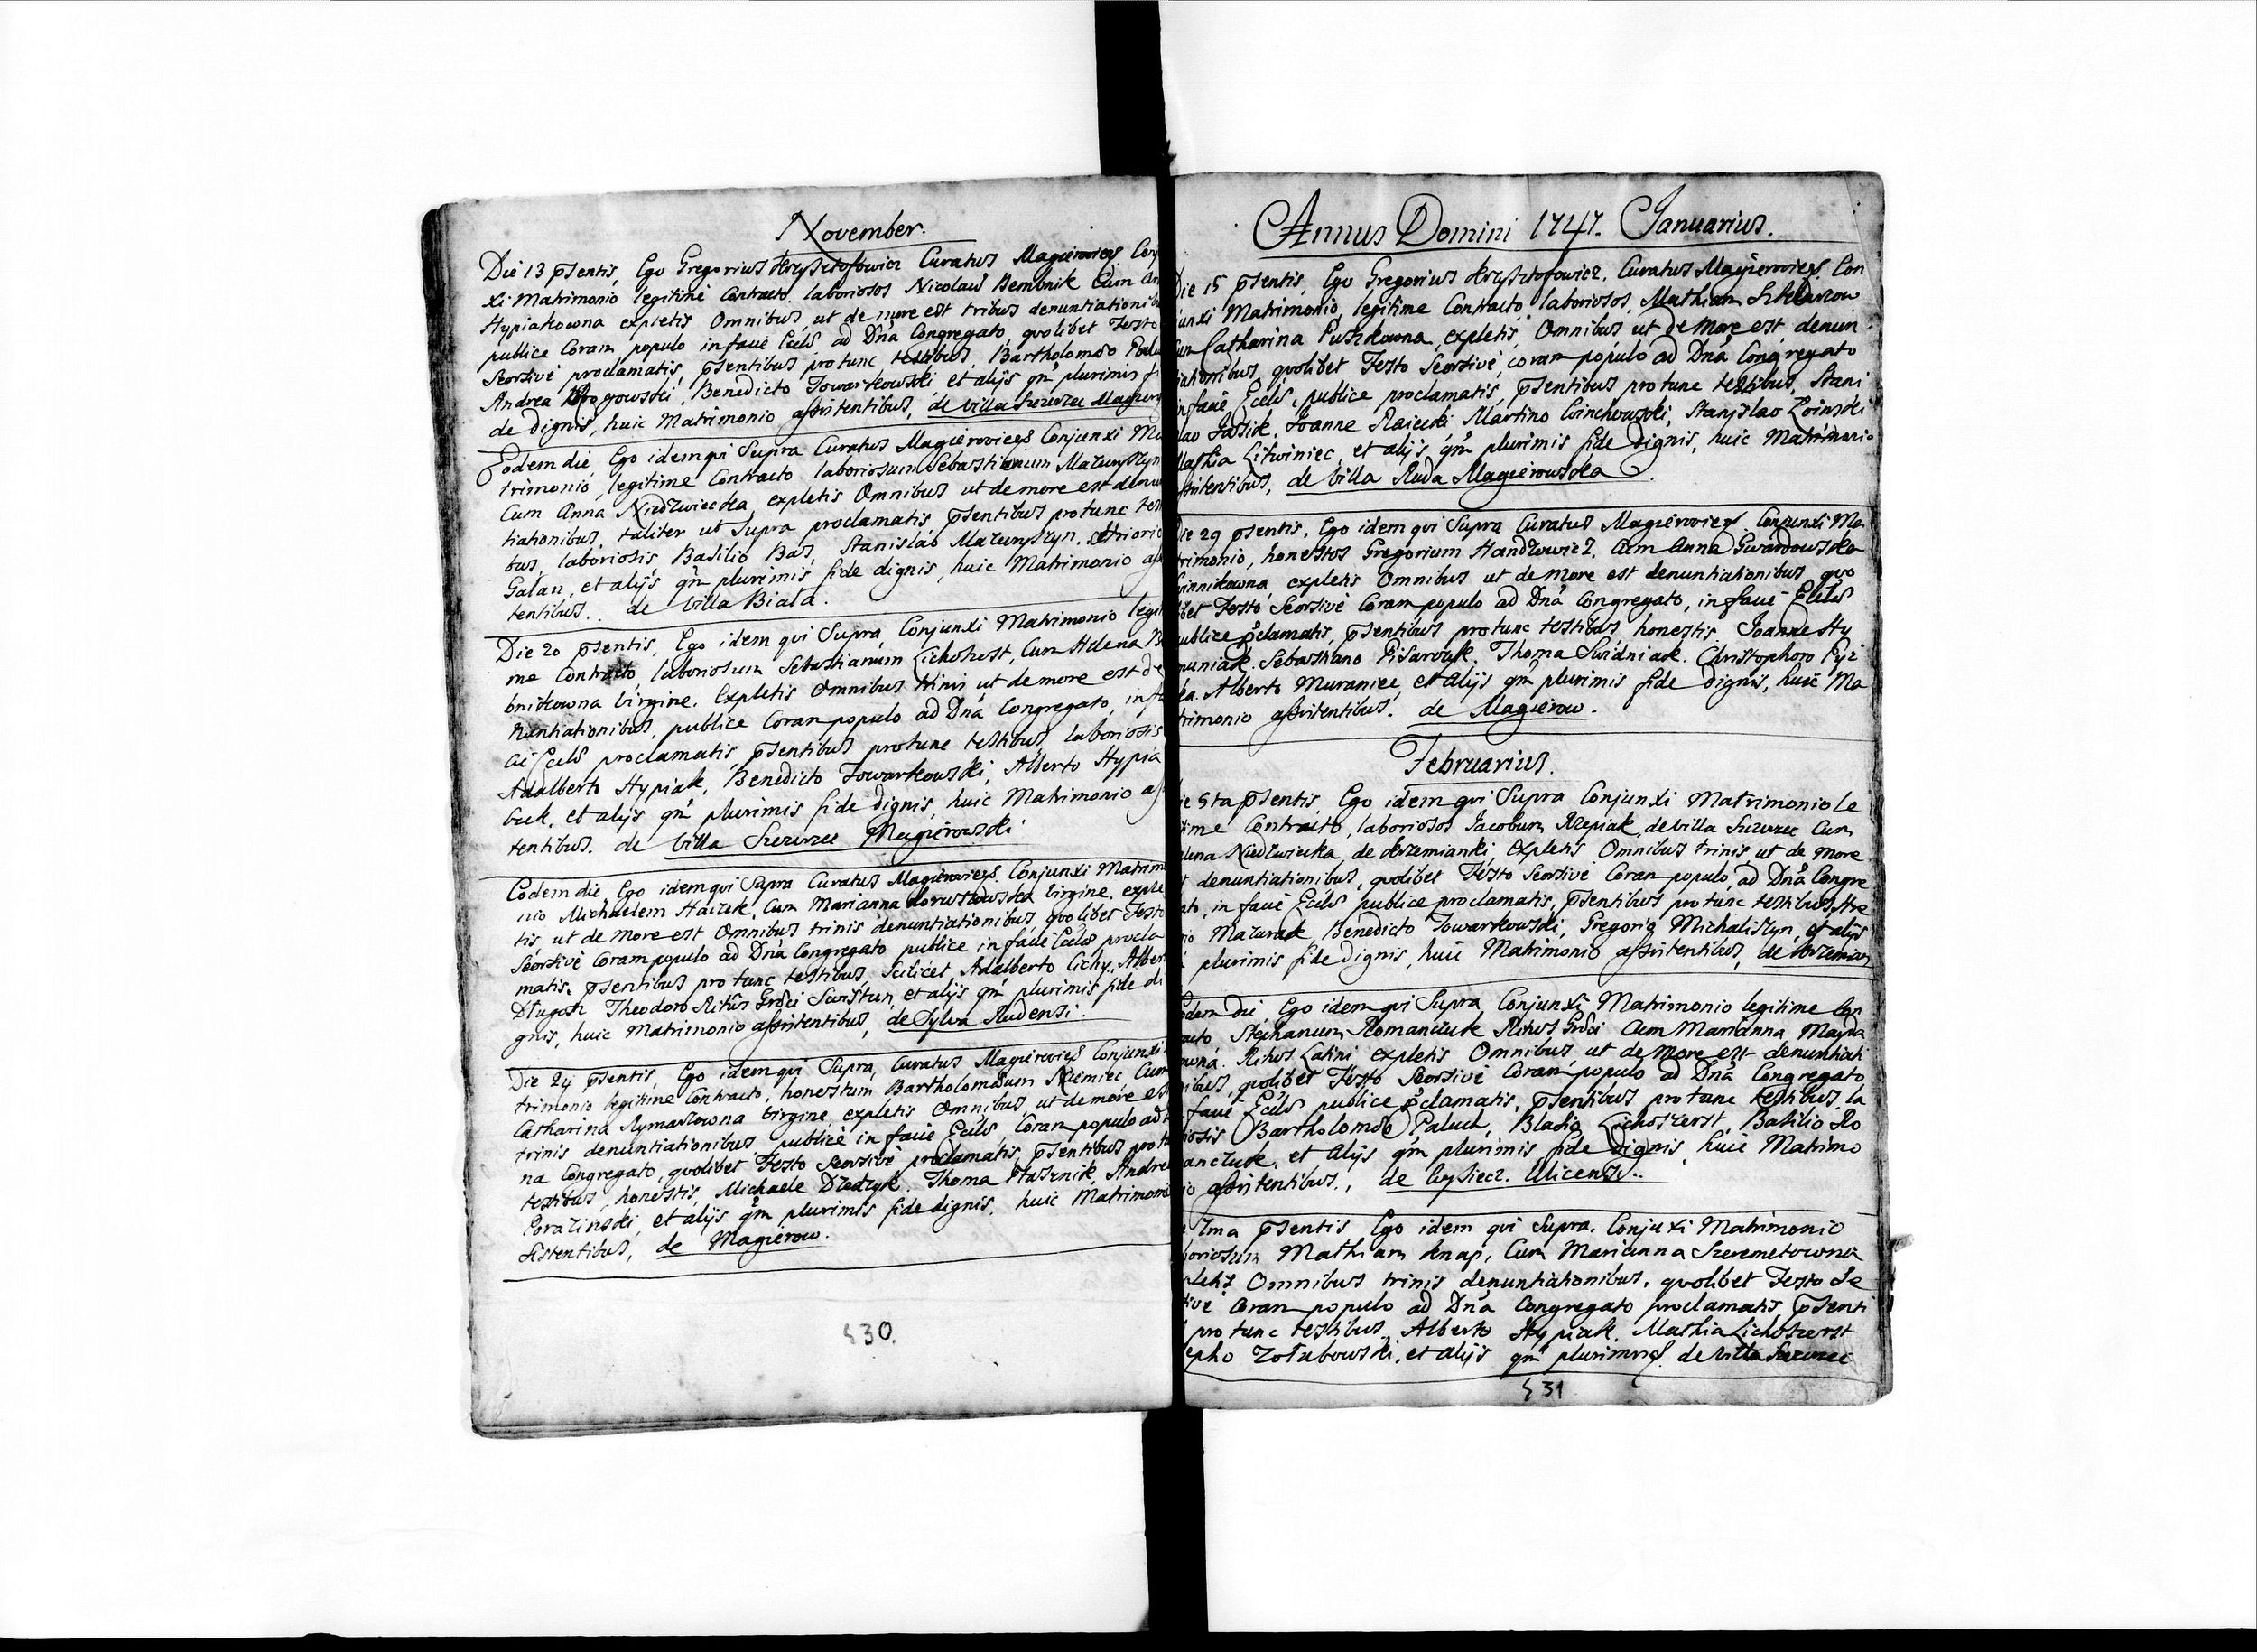 November.
Die 13 psentis, Ego Gregorius Krzysztofowicz Curatus Magierovieñs Con
xi Matrimonio legitime Contracto laboriosos Nicolaū Bembnik Cum An
Hypiakowna expletis Omnibus ut de more est tribus denuntiationib
publice Coram populo in facie Eccłs ad Dna Congregato, quolibet Festo
Seorsive proclamatis, psentibus pro tunc testibus, Bartholomæo Palu
Andrea Rogowski, Benedicto Towarkowski et alijs qm plurimis f
de dignis, huic Matrimonio assistentibus, de villa Szczurzec Magierow
Eodem die, Ego idem qui Supra Curatus Magierovieñs Conjunxi Ma
trimonio, legitime Contracto, laboriosum Sebastianum Mazurszyn
Cum Anna Niedzwiecka, expletis Omnibus ut de more est denun
tiationibus, taliter ut Supra proclamatis psentibus pro tunc tes
bus, laboriosis, Basilio Bas, Stanislao Mazurszyn,
Gałan, et alijs qm plurimis fide dignis, huic Matrimonio ass
tentibus. de Villa Biała.
Die 20 psentis, Ego idem qui Supra, Conjunxi Matrimonio legit
me Contracto, laboriosum Sebastianum Lichoszest, Cum Helena B
bnikowna Virgine. Expletis Omnibus trinis ut de more est de
nuntiationibus, publice Coram populo ad Dna Congregato, in fa
cie Eccłs proclamatis, psentibus pro tunc testibus, laboriosis
Adalberto Hypiak, Benedicto Towarkowski, Alberto Hypia
buk, et alijs qm plurimis fide dignis, huic Matrimonio ass
tentibus. de Villa Szczurzec Magierowski
Eodem die, Ego idem qui Supra Curatus Magierovieñs. Conjunxi Matrim
nio Michaelem Haczek, Cum Marianna Virgine, exple
tis ut de more est Omnibus trinis denuntiationibus, quolibet Festo
Seorsive Coram populo ad Dna Congregato publice in facie Eccłs procla
matis, psentibus pro tunc testibus, Scilicet, Adalberto Cichy, Alber
Długosz Theodoro Ritus Græci Swistun, et alijs qm plurimis fide di
gnis, huic Matrimonio assistentibus, de Sylva Rudensi.
Die 24 psentis, Ego idem qui Supra, Curatus Magierovieñs Conjunxi
trimonio legitime Contracto, honestum Bartholomæum Niemiec Cum
Catharina Rymarzowna Virgine, expletis Omnibus ut de more est
trinis denuntiationibus publice in facie Eccłs, Coram populo ad
na Congregato, quolibet Festo Seorsive proclamatis, psentibus pro tu
testibus, honestis, Michaele Dziedzyk. Thoma Ptasznik, Andre
Porazinski, et alijs qm plurimis fide dignis, huic Matrimoni
sistentibus, de Magierow.
430.
Annus Domini 1747. Januarius.
Die 15 psentis, Ego Gregorius Krzysztofowicz, Curatus Magierovieñs. Con
junxi Matrimonio, legitime Contracto, laboriosos, Mathiam Szkdarzow
Cum Catharina Puszkowna, expletis, Omnibus ut de more est, denun
tiationibus, quolibet Festo Seorsive, coram populo ad Dna Congregato
in facie Eccłs, publice proclamatis, psentibus pro tunc testibus, Stani
lao Jasik, Joanne Raicki Martino Winchowski, Stanislao Zoinski
Mathia Litwiniec, et alijs qm plurimis fide dignis, huic Matrimonio
assistentibus, de Villa Ruda Magierowska.
Die 29 psentis, Ego idem qui Supra Curatus Magierovieñs. Conjunxi Ma
trimonio, honestos Gregorium Handzowicz, Cum Anna Gwardowska
Winnikowna, expletis Omnibus ut de more est denuntiationibus quo
libet Festo Seorsive Coram populo ad Dna Congregato, in facie Eccłs
publice pclamatis, psentibus pro tunc testibus, honestis. Joanne Hy
muniak. Sebastiano Pisarczyk. Thoma Swidniak. Christophoro Pyz
ka Alberto Muraniec, et alijs qm plurimis fide dignis, huic Ma
trimonio assistentibus. de Magierow.
Februarius.
ie 5ta psentis, Ego idem qui Supra Conjunxi Matrimonio le
time Contracto, laboriosos Jacobum Rzepiak, de villa Szczurzec Cum
elena Niedzwiecka, de Krzemianki, Expletis Omnibus trinis ut de more
t denuntiationibus, quolibet Festo Seorsive Coram populo, ad Dna Congre
ato, in facie Eccłs publice proclamatis, psentibus pro tunc testibus, Hre
rio Mazurak, Benedicto Towarkowski, Gregorio Michaliszyn, et alijs
plurimis fide dignis, huic Matrimonio assistentibus, de Krzemian
Eodem die, Ego idem qui Supra Conjunxi Matrimonio legitime Con
racto Stephanum Romanczuk Ritus Græci Cum Marianna Mazu
owna. Ritus Latini expletis Omnibus, ut de more est denuntiati
nibus, quolibet Festo Seorsive Coram populo ad Dna Congregato
facie Eccłs publice pclamatis, psentibus pro tunc testibus, la
riosis Bartholomæo Paluch, Blasio Lichoszerst, Basilio Ro
manczuk, et alijs qm plurimis fide dignis, huic Matrimo
io assistentibus., de Ulicensi.
e 7ma psentis Ego idem qui Supra. Conjuxi Matrimonio
boriosum Mathiam Knap, Cum Marianna Szeremetowna
pletis Omnibus trinis denuntiationibus, quolibet Festo Se
sive Coram populo ad Dna Congregato proclamatis, psenti
pro tunc testibus, Alberto Hypiak, Mathia Lichoszerst
epho Zołubowski, et alijs qm plurimis. de Villa Szczurzec
431